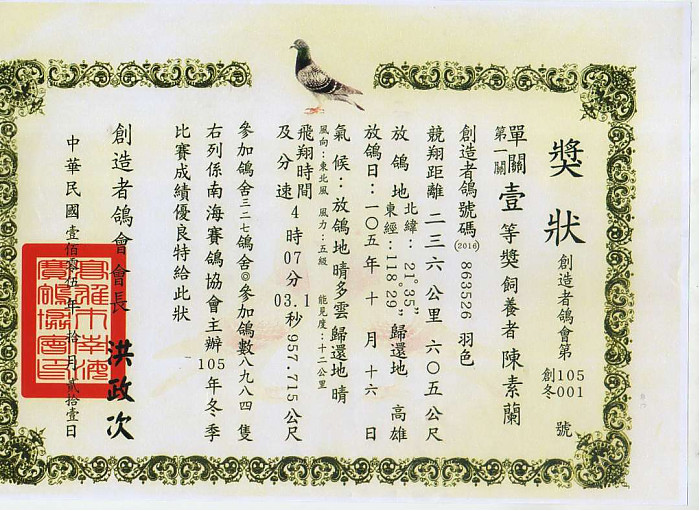 獎狀
創造者鴿會第 創冬 105 001 號
單關 第一關 壹等獎飼養者陳素蘭
創造者鴿號碼(2016) 863526 羽色
競翔距離 二三六公里 六〇五公尺
放鴿地 北緯：21°35" 東經：118°29" 歸還地 高雄
放鴿日：一〇五年 十 月 十六 日
氣候：放鴿地晴多雲 歸還地晴
風向：東北風 風力：五級 能見度：十二公里
飛翔時間 4 時 07 分 03.1 秒 957.715 公尺
及分速
參加鴿舍三二七鴿舍◎參加鴿數八九八四 隻
右列係南海賽鴿協會主辦 105 年冬季
比賽成績優良特給此狀
創造者鴿會會長 洪政次
中華民國壹佰零伍年 拾月 貳拾壹日